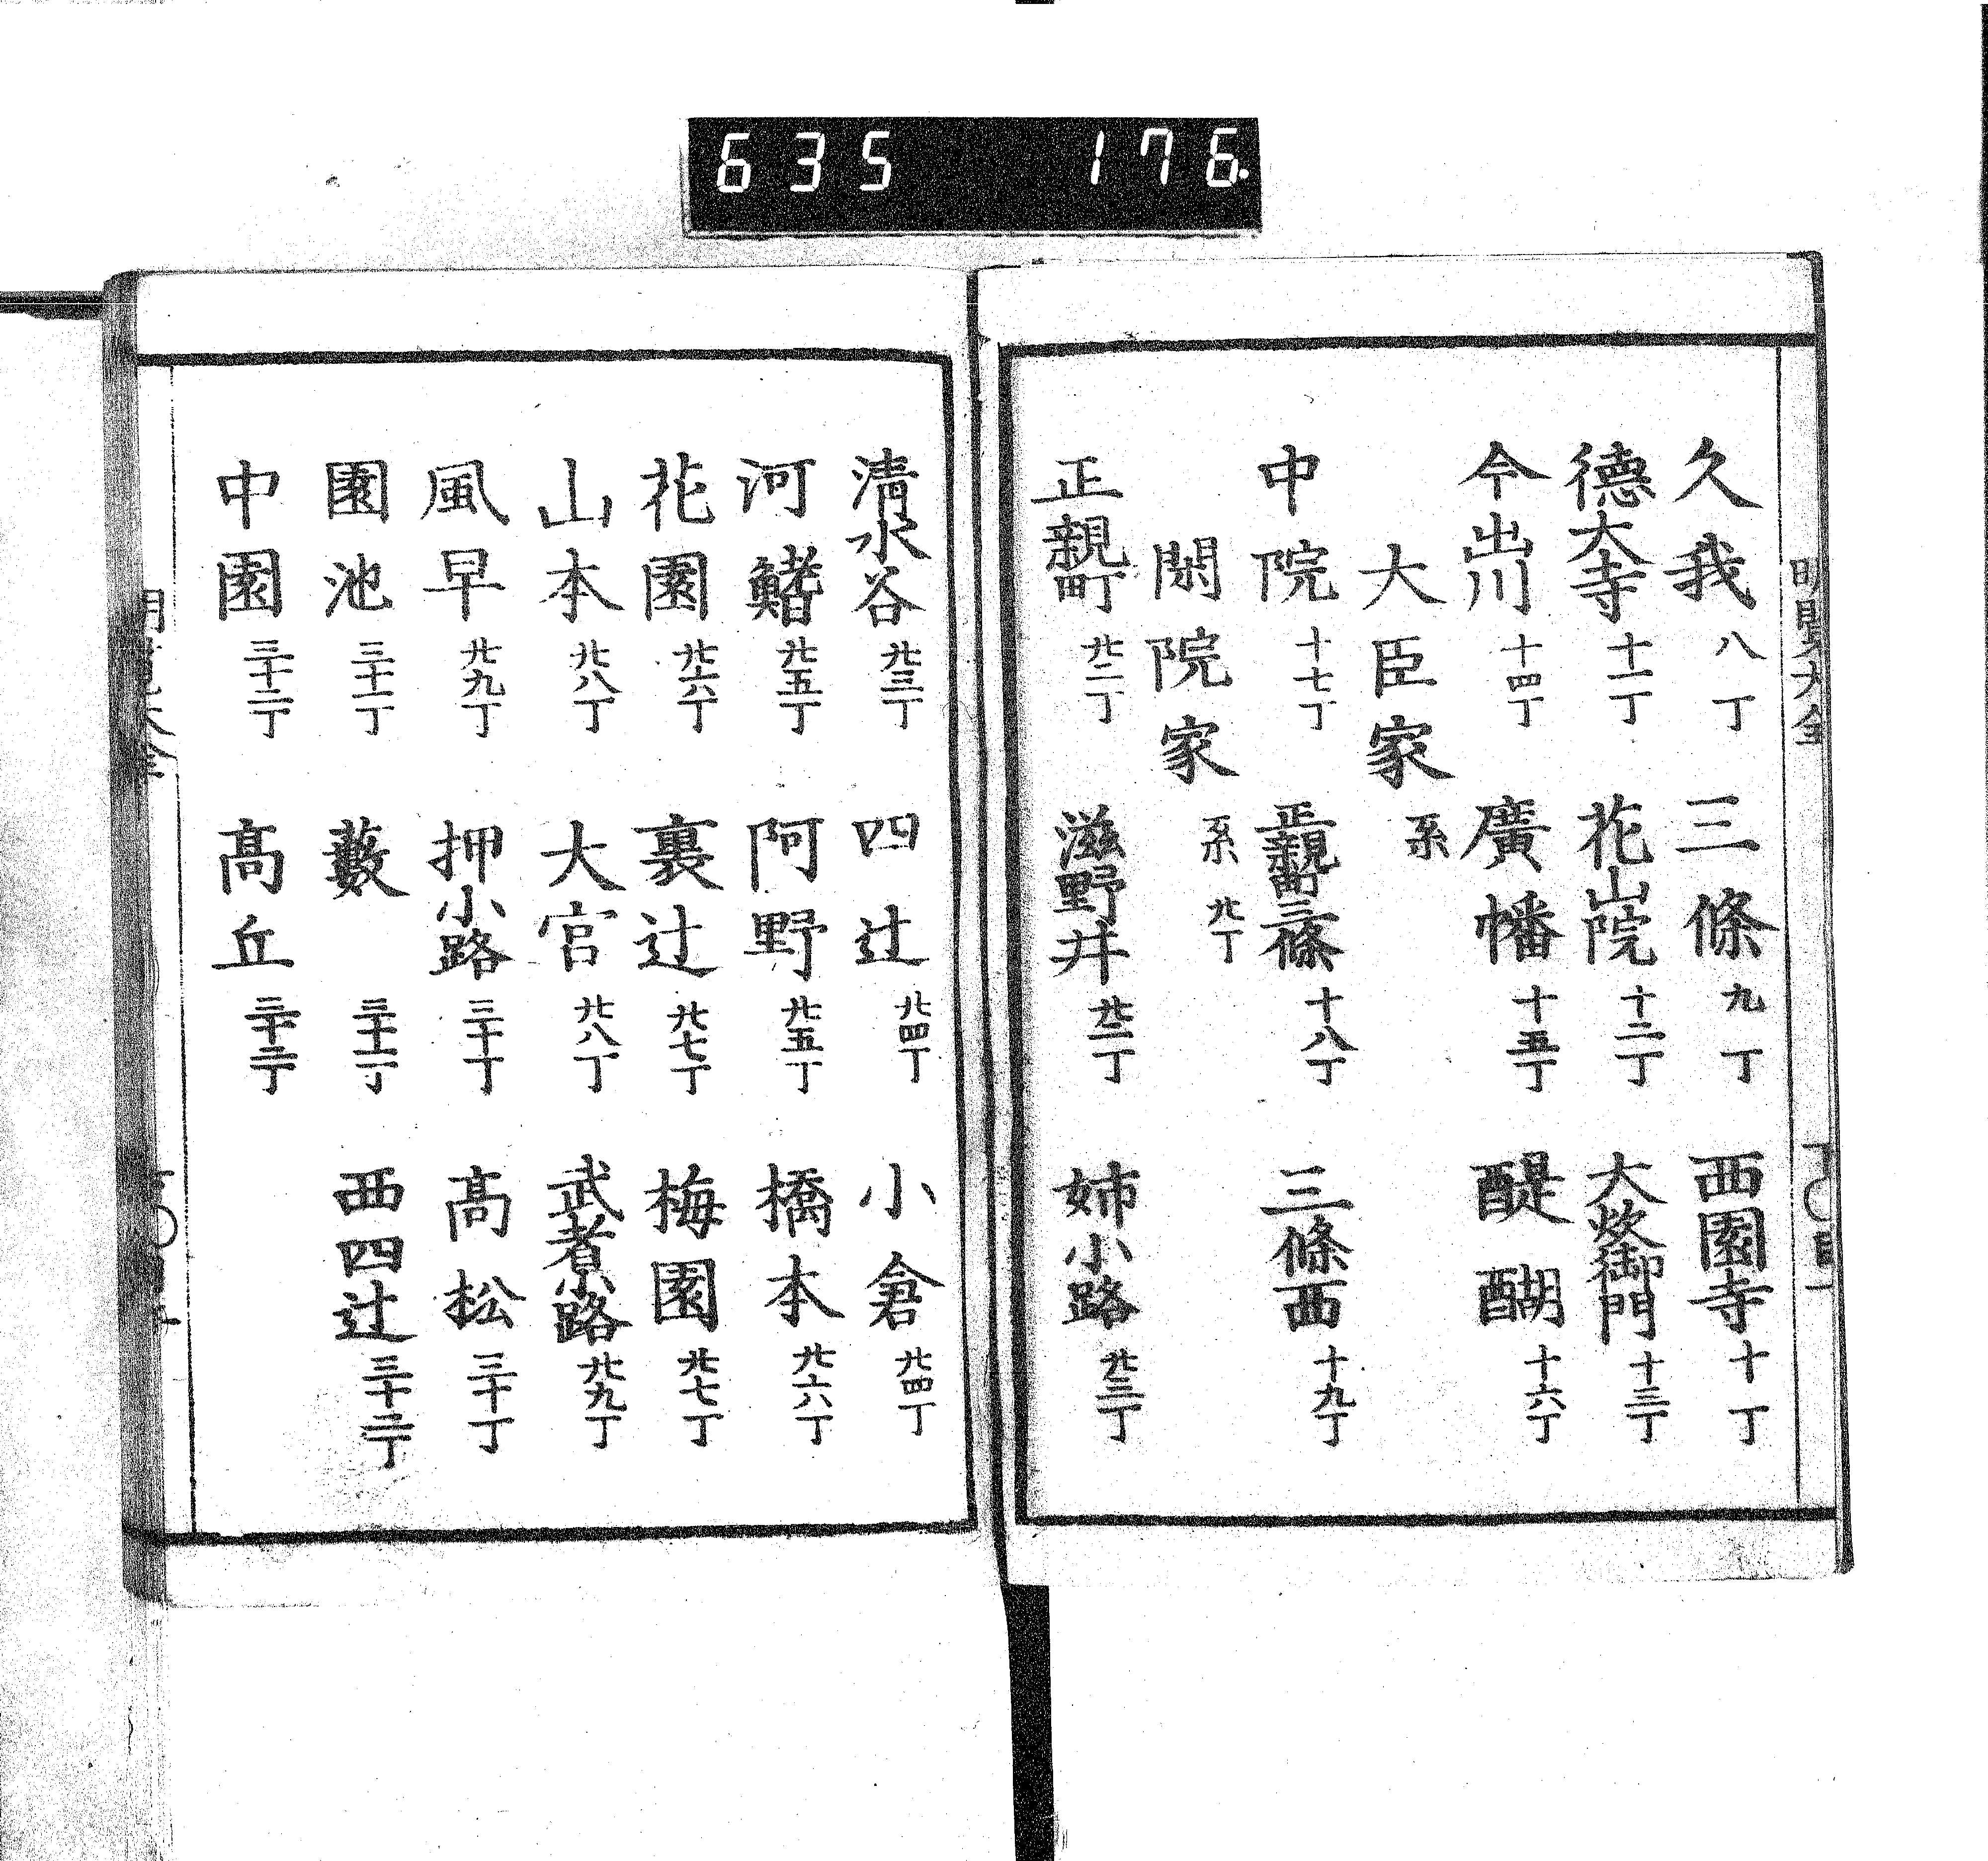 635 176
久我 八丁 三條 九丁 西園寺 十丁
德大寺 十一丁 花山院 十二丁 大炊御門 十三丁
今出川 十四丁 廣幡 十五丁 醍醐 十六丁
大臣家 系
中院 十七丁 正親町三條 十八丁 三條西 十九丁
閑院家 系 廿丁
正親町 廿二丁 滋野井 廿二丁 姉小路 廿三丁
清水谷 廿三丁 四辻 廿四丁 小倉 廿四丁
河鰭 廿五丁 阿野 廿五丁 橋本 廿六丁
花園 廿六丁 裏辻 廿七丁 梅園 廿七丁
山本 廿八丁 大宮 廿八丁 武者小路 廿九丁
風早 廿九丁 押小路 三十丁 高松 三十丁
園池 三十一丁 藪 三十一丁 西四辻 三十二丁
中園 三十二丁 高丘 三十二丁